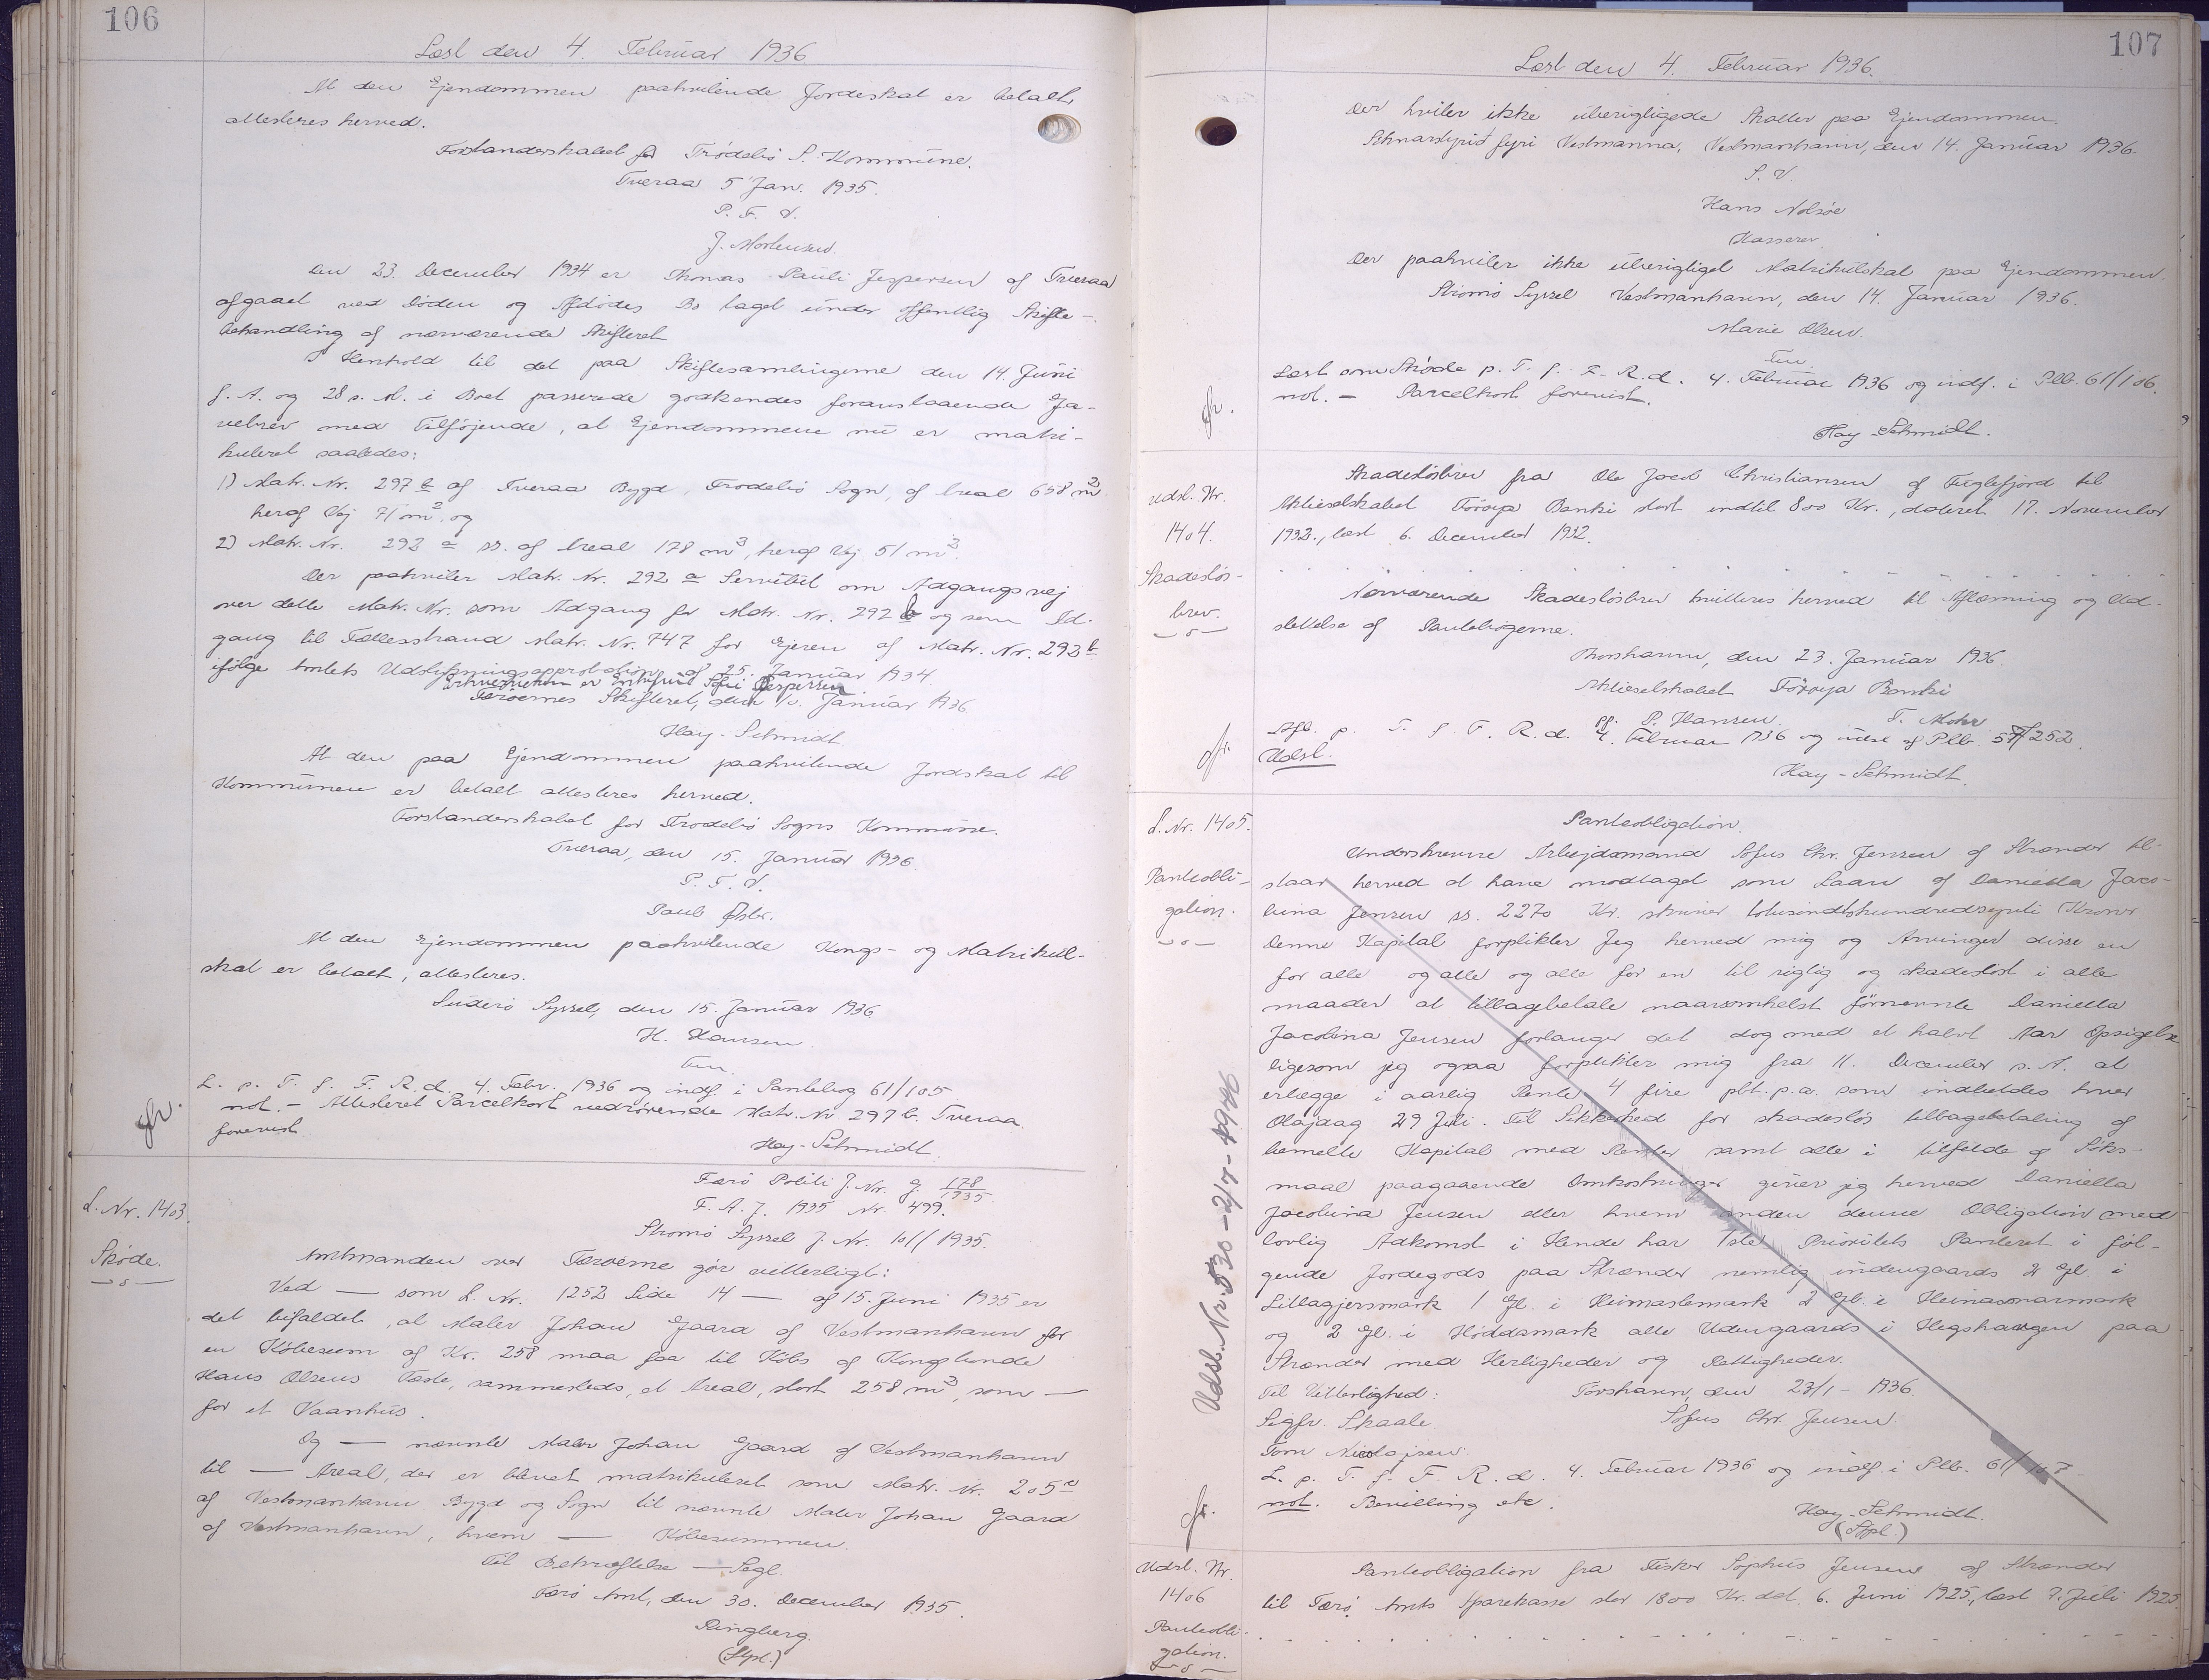 106
Læst den 4. Februar 1936
At den Ejendommen paahvilende Jordeskat er betalt
attesteres herved.
Forstanderskabet for Frodebø S. Kommune.
Tveraa 5 Jan. 1935.
P. F. V.
J. Mortensen.
Den 23. December 1934 er Thomas Pauli Jespersen af Tveraa
afgaaet ved Døden og Afdødes Bo taget under offentlig Skifte-
behandling af nærværende Skifteret
I Henhold til det paa Skiftesamlingerne den 14. Juni
f. A. og 28 s. M. i Boet passerede godkendes foranstaaende Ga-
vebrev med Tilføjende, at Ejendommene nu er matri-
kuleret saaledes:
1) Matr. Nr. 297 b af Tveraa Bygd, Frodebø Sogn, af Areal 658 m2
heraf Vej 71 m2, og
2) Matr. Nr. 292 a ss. af Areal 178 m2, heraf Vej 51 m2.
Der paahviler Matr. Nr. 292 a Servitut om Adgangsvej
over dette Matr. Nr. som Adgang for Matr. Nr. 292 b og som Ad-
gang til Fællesstrand Matr. Nr. 747 for Ejeren af Matr. Nr. 292 b
ifølge Amtets Udstykningsapprobation af 25. Januar 1934.
Erhververen er Sofie Jespersen
Færøernes Skifteret, den Januar 1936
Hay-Schmidt
At den paa Ejendommen paahvilende Jordskat til
Kommunen er betalt attesteres herved.
Forstanderskabet for Frodebø Sogns Kommune.
Tveraa, den 15. Januar 1936.
P. F. V.
Poul
At den Ejendommen paahvilende Kongs- og Matrikul-
skat er betalt, attesteres.
Suderø Syssel, den 15. Januar 1936
H. Hansen
Fm.
L. p. T. f. F. R. d. 4. Febr. 1936 og indf. i Pantebog 61/105
not. - Attesteret Parcelkort vedrørende Matr. Nr 297 b. Tveraa
forevist.
Hay-Schmidt.
L. Nr. 1403.
Skøde.
Færø Politi J. Nr. G. 178/1935.
F. A. J. 1935 Nr. 499.
Strømø Syssel J. Nr. 1011 1935.
Amtmanden over Færøerne gør vitterligt:
Ved — som L. Nr. 1252 Side 14 — af 15. Juni 1935 er
det bifaldet, at Maler Johan Gaard af Vestmanhavn for
en Købesum af Kr. 258 maa faa til Købs af Kongsbonde
Hans Olsens Fæste, sammesteds, et Areal, stort 258 m2, som —
for et Vaanhus.
Og — nævnte Maler Johan Gaard af Vestmanhavn
til — Areal, der er blevet matrikuleret som Matr. Nr. 205 c
af Vestmanhavn Bygd og Sogn til nævnte Maler Johan Gaard
af Vestmanhavn, hvem — Købesummen.
Til Bekræftelse — Segl.
Færø Amt, den 30. December 1935.
Ringberg.
(Stpl.)
107
Læst den 4. Februar 1936.
Der hviler ikke uberigtigede Skatter paa Ejendommen.
fyri Vestmanna, Vestmanhavn, den 14. Januar 1936.
S. V.
Hans Nolsøe
Kasserer.
Der paahviler ikke uberigtiget Matrikulskat paa Ejendommen.
Strømø Syssel Vestmanhavn, den 14. Januar 1936.
Marie Olsen.
Fm
Læst som Skøde p. T. f. F. R. d. 4. Februar 1936 og indf. i Plb. 61/106.
not. - Parcelkort forevist.
Hay-Schmidt.
Udsl. Nr.
1404.
Skadesløs-
brev.
Skadesløsbrev fra Ole Jacob Christiansen af Fuglefjord til
Aktieselskabet Føroya Banki stort indtil 800 Kr., dateret 17. November
1932., læst 6. December 1932.
Nærværende Skadesløsbrev kvitteres herved til Aflæsning og Ud-
slettelse af Pantebøgerne.
Thorshavn, den 23. Januar 1936.
Aktieselskabet Føroya Banki
pp. P. Hansen. T. Mohr
Afl. p. T. f. F. R. d. 4. Februar 1936 og udsl af Plb. 57/252.
Udsl.
Hay-Schmidt.
L. Nr. 1405.
Panteobli-
gation.
Panteobligation.
Underskrevne Arbejdsmand Sofus Chr. Jensen af Strænder til-
staar herved at have modtaget som Laan af Daniella Jaco-
bina Jensen ss. 2270 Kr. skriver totusindtohundredsyvti Kroner
Denne Kapital forplikter Jeg herved mig og Arvinger disse en
for alle og alle og alle for en til rigtig og skadesløst i alle
maader at tilbagebetale naarsomhelst førnevnte Daniella
Jacobina Jensen forlanger det dog med et halvt Aar Opsigelse
ligesom jeg ogsaa forplikter mig fra 11. December s. A. at
erlægge i aarlig Rente 4 fire pct. p. a. som indbetales hver
Olajdag 29 Juli. Til Sikkerhed for skadesløs tilbagebetaling af
bemelte Kapital med Renter samt alle i tilfelde af Søks-
maal paagaaende Omkostninger giver jeg herved Daniella
Jacobina Jensen eller hvem anden denne Obligation med
lovlig Adkomst i Hende har 1ste Prioritets Panteret i føl-
gende Jordegods paa Strænder nemlig indengaards 2 Gl. i
Lillagjersmark 1 Gl. i Heimastemark 2 Gl. i Heinasnarmark
og 2 Gl. i Høddamark alle Udengaards i Hegshaugen paa
Strænder med Herligheder og Rettigheder.
Til Vitterlighed: Torshavn, den 23/1 - 1936.
Sigfr. Skaale. Sofus Chr. Jensen.
Tom Nicolajsen.
L. p. T. f. F. R. d. 4. Februar 1936 og indf. i Plb. 61/107.
not. Bevilling etc.
Hay-Schmidt.
(Stpl.)
Udsl. Nr. 530 - 2/7 - 1946
Udsl. Nr.
1406
Panteobli-
gation.
Panteobligation fra Fisker Sophus Jensen af Strænder
til Færø Amts Sparekasse stor 1800 Kr. dat. 6. Juni 1925, læst 7. Juli 1925.